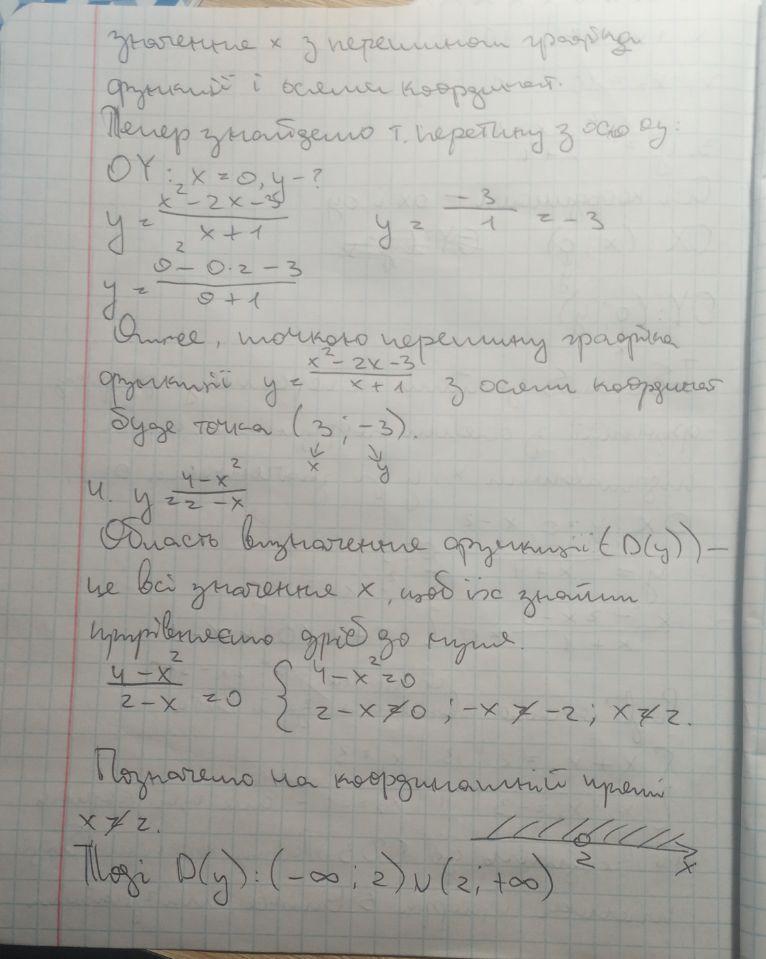 значення x з перетином графіка
функції і осями координат.
Тепер знайдемо т. перетину з осю oy:
OY: x = 0, y - ?
y = (x² - 2x - 3)/(x + 1)    y = (-3)/1 = -3
y = (0² - 0·2 - 3)/(0 + 1)
Отже, точкою перетину графіка
функції y = (x² - 2x - 3)/(x + 1) з осями координат
буде точка (3; -3).
↓ x ↓ y
4. y = (4 - x²)/(2 - x)
Область визначення функції (D(y)) –
це всі значення x, щоб їх знайти
прирівняємо дріб до нуля.
(4 - x²)/(2 - x) = 0 { 4 - x² = 0
2 - x ≠ 0; -x ≠ -2; x ≠ 2.
Позначемо на координатній прямі
x ≠ 2.
2 x
Тоді D(y): (-∞; 2) ∪ (2; +∞)